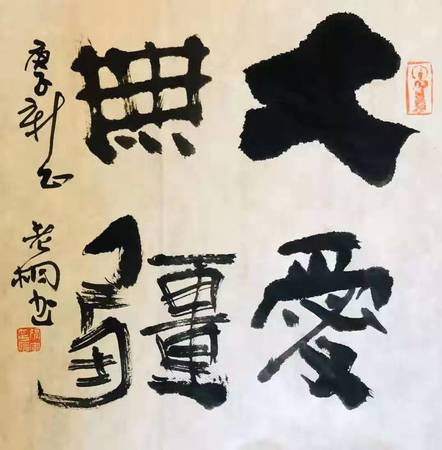 大愛
無疆
庚子新正
老桐书